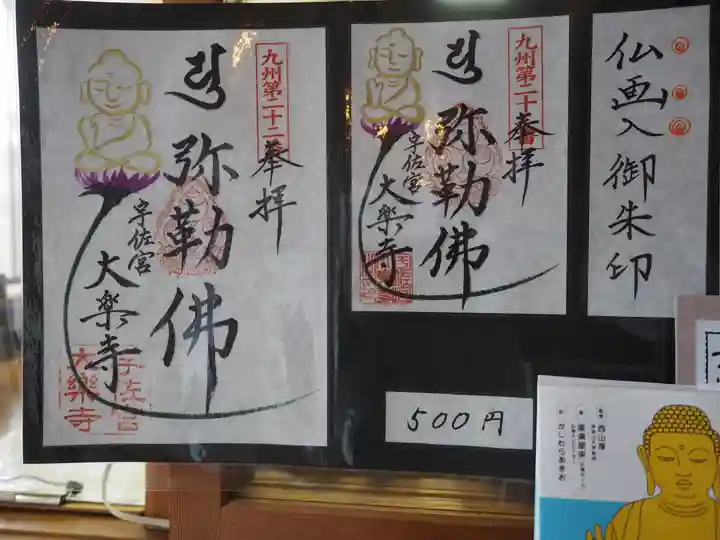 仏画入御朱印
九州第二十二番
奉拝
弥勒佛
宇佐宮
大楽寺
宇佐宮
大樂寺
九州第二十
奉拝
弥勒佛
宇佐宮
大楽寺
500円
西山厚
かしわらあきお